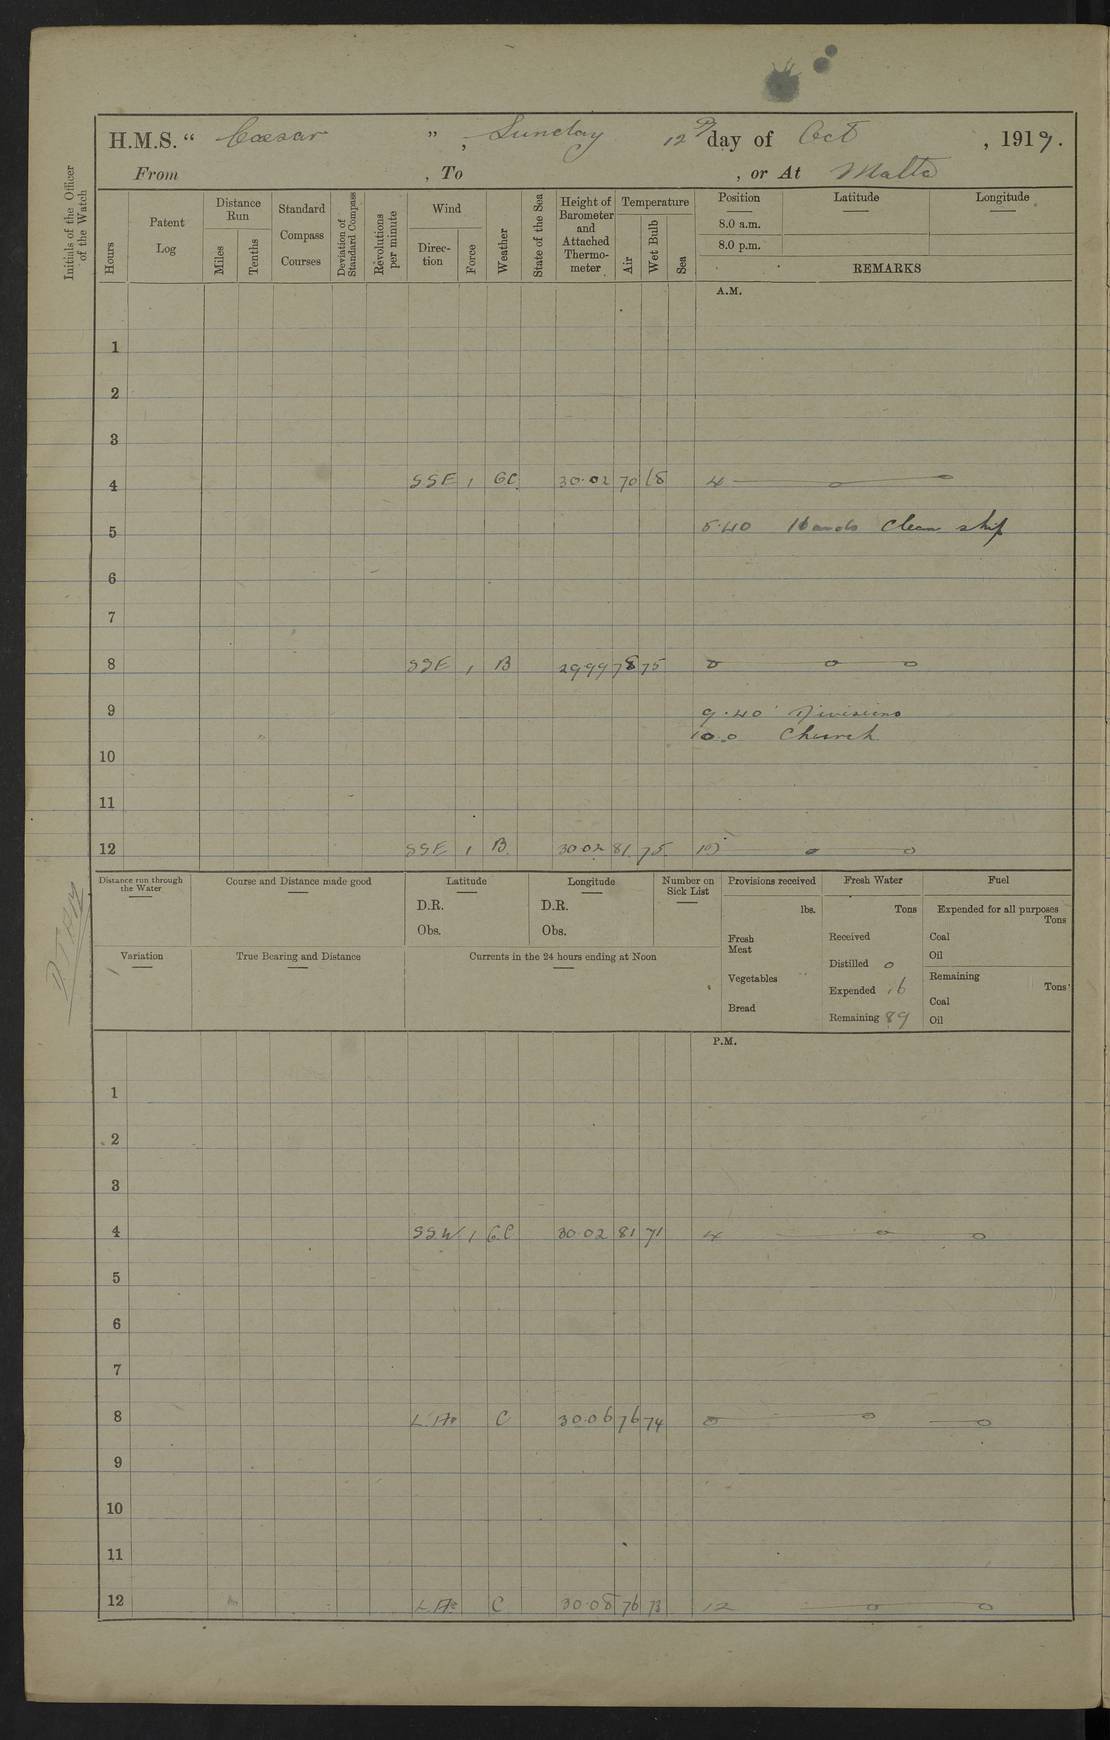 H.M.S. “ Cæsar ”, Sunday 12th day of Oct , 1919.
From , To , or At Malta
Initials of the Officer of the Watch
Hours
Patent Log
Distance Run
Miles
Tenths
Standard Compass Courses
Deviation of Standard Compass
Revolutions per minute
Wind
Direc-tion
Force
Weather
State of the Sea
Height of Barometer and Attached Thermo-meter
Temperature
Air
Wet Bulb
Sea
Position Latitude Longitude
8.0 a.m.
8.0 p.m.
REMARKS
A.M.
1
2
3
4 SSE 1 GC 30.02 70 68 4
5 5.40 Hands clean ship
6
7
8 SSE 1 B 29.99 78 75
9 9.40 Divisions
10.0 Church
10
11
12 SSE 1 B. 30.02 81 75
Distance run through the Water
Course and Distance made good
Latitude
D.R.
Obs.
Longitude
D.R.
Obs.
Number on Sick List
Provisions received
lbs.
Fresh Meat
Vegetables
Bread
Fresh Water
Tons
Received
Distilled 0
Expended 16
Remaining 89
Fuel
Expended for all purposes
Tons
Coal
Oil
Remaining
Tons
Coal
Oil
Variation
True Bearing and Distance
Currents in the 24 hours ending at Noon
P.M.
1
2
3
4 SSW. 1 G.C 30.02 81 71 4
5
6
7
8 C 30.06 76 74
9
10
11
12 C 30.08 76 73 12